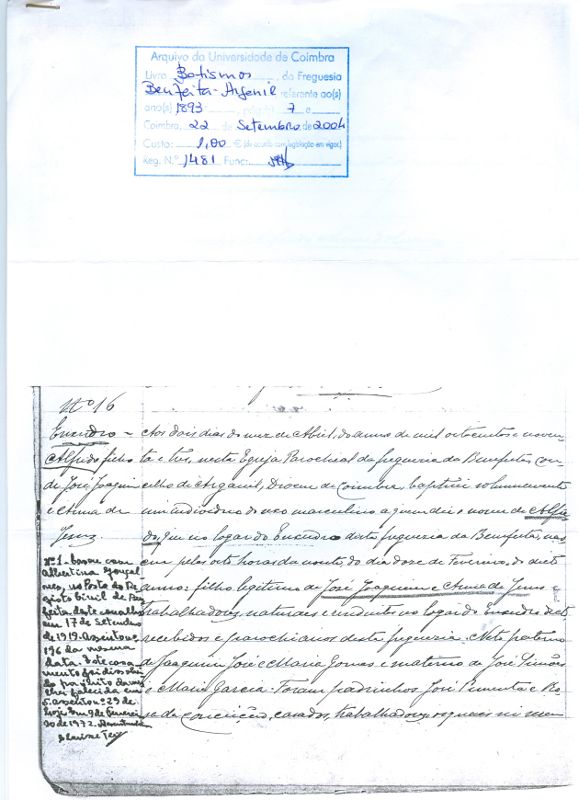 Arquivo da Universidade de Coimbra
Livro Batismos da Freguesia
Benfeita - Arganil referente ao(s)
ano(s) 1893 7 e
Coimbra, 22 de Setembro de 2004
Custo: 1,00 € (de acordo com legislação em vigor)
Reg. N.º 1481 Func:
Nº 16
Enxudro - Aos dois dias do mez de Abril, do anno de mil oitocentos e noven
Alfredo filho ta e tres, nesta Egreja Parochial da freguezia da Benfeita, con-
de José Joaquim celho de Arganil, Diocese de Coimbra baptisei solemnemente
e Anna de um individuo do sexo masculino a quem dei o nome de Alfre
Jesus. do, que no logar do Enxudro desta freguezia da Benfeita, nas
ceu pelas oito horas da noute, do dia doze de Fevereiro, do dicto
anno: filho legitimo de José Joaquim e Anna de Jesus
trabalhadores, naturaes e no logar do Enxudro
recebidos e parochianos desta freguezia. Neto paterno
de Joaquim José e Maria Gomes e materno de José Simões
e Maria Garcia. Foram padrinhos José Pimenta e Ro
sa da Conceição, casados, trabalhadores, os quaes
Nº 1 - Casou com
Albertina Gonçal
ves, no Posto do Re
gisto Civil de Ben
feita, deste concelho
em 17 de Setembro
de 1919. Assento nº
196 da mesma
data. Este casa
mento foi dissolvi
do por óbito da mu
lher falecida em
5. assento nº 23 de
hoje. Em 9 de Fevereiro
de 1972.